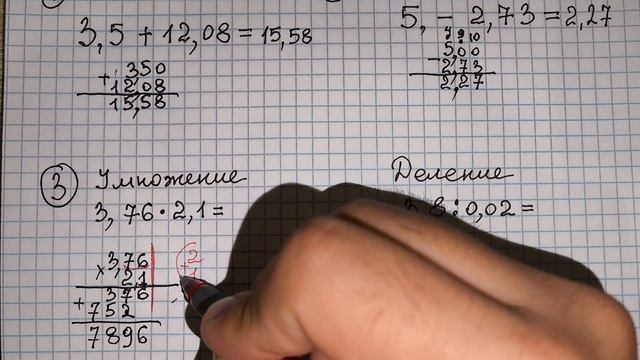 3,5 + 12,08 = 15,58
+ 3,50
12,08
15,58
5, - 2,73 = 2,27
4 9 10
5,00
- 2,73
2,27
3 Умножение
3,76 · 2,1 =
3,76
× 2,1
376
+ 752
7896
2
+
1
Деление
8 : 0,02 =